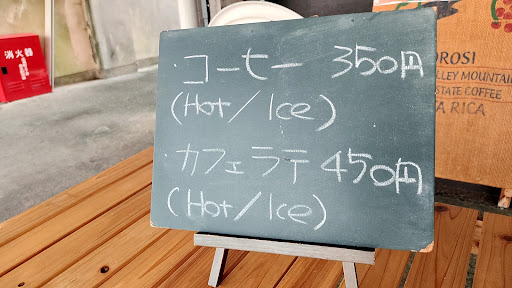 消火器
・コーヒー 350円
(Hot/Ice)
・カフェラテ 450円
(Hot/Ice)
OROSI
LLEY MOUNTAI
STATE COFFEE
A RICA